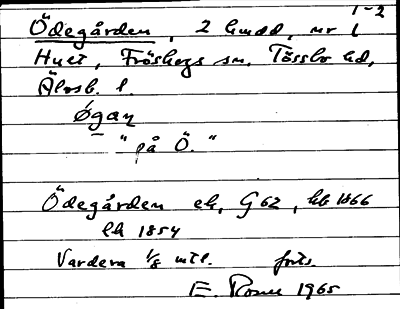 1-2
Ödegården, 2 hmdd, nr 1
Huet, Fröskogs sn, Tössbo hd,
Älvsb. l.
øgaṇ
"på Ö."
Ödegården ek, G 62, hb 1866
lh 1854
Vardera 1/8 mtl. forts.
E. 1965